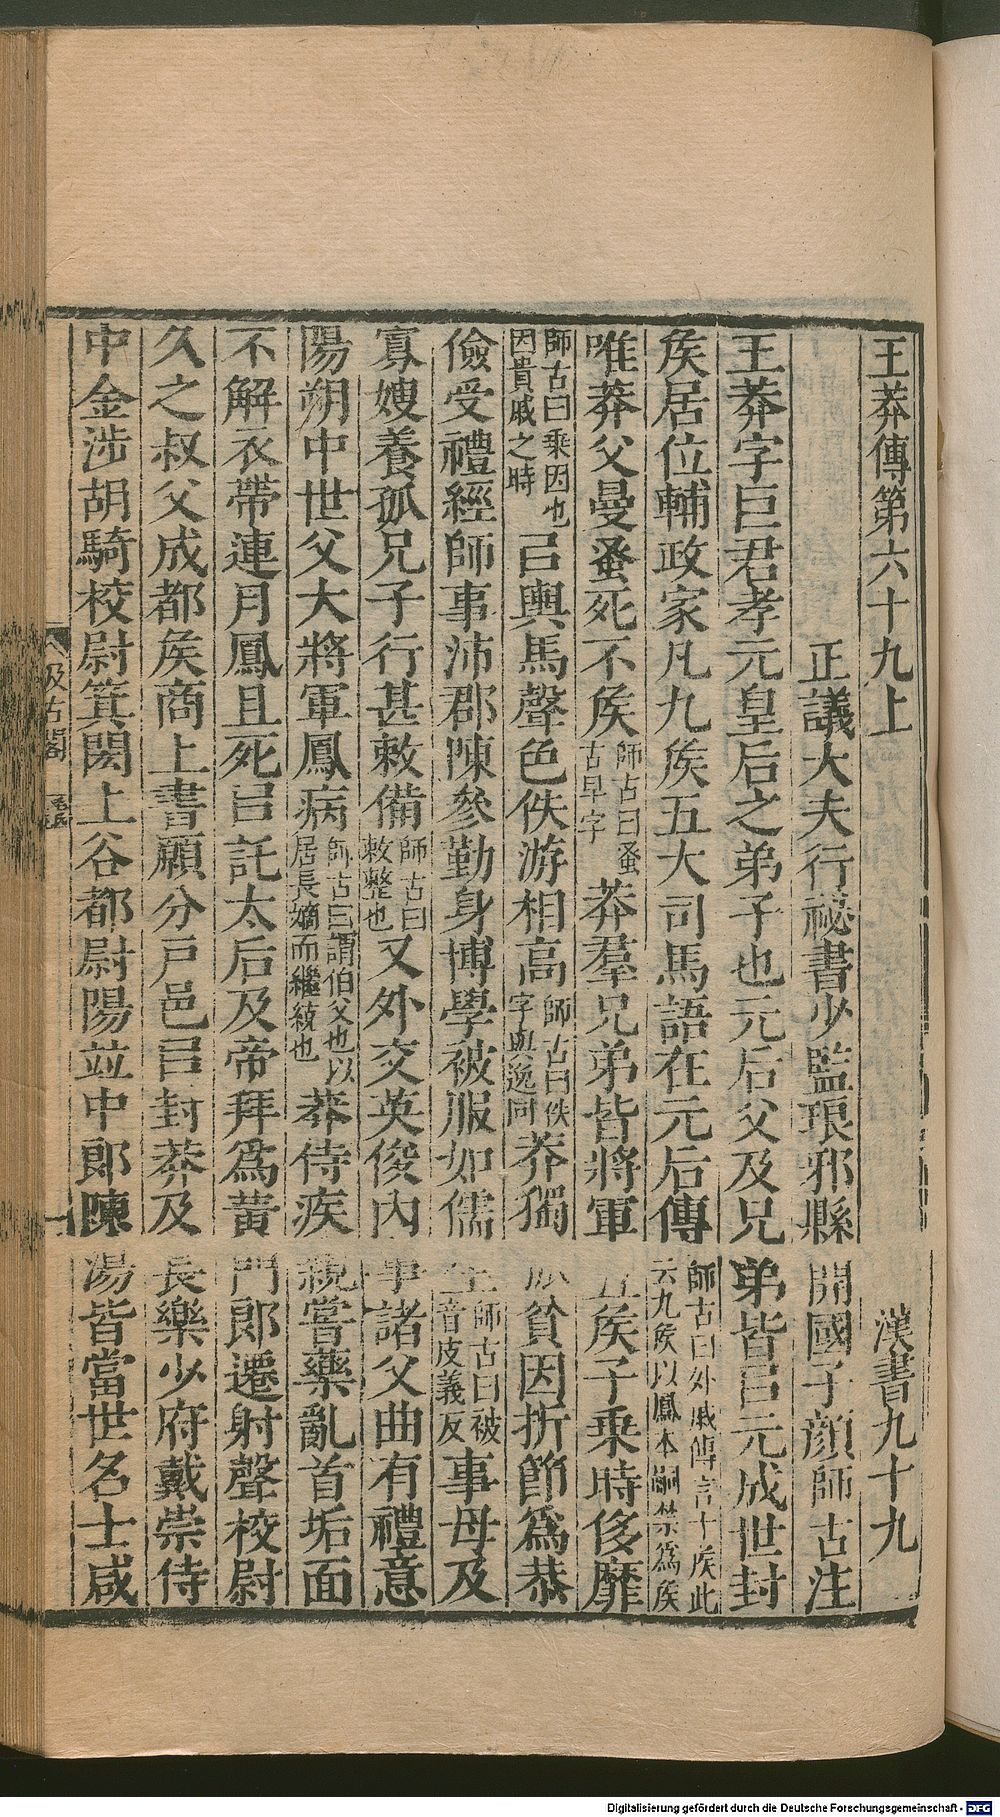 王莽傳第六十九上 漢書九十九
正議大夫行祕書少監琅邪縣開國子顏師古注
王莽字巨君孝元皇后之弟子也元后父及兄弟皆㠯元成世封
矦居位輔政家凡九矦五大司馬語在元后傳師古曰外戚傳言十矦此云九矦以鳳本嗣禁爲矦
唯莽父曼蚤死不矦師古曰蚤古早字莽羣兄弟皆將軍五矦子乗時侈靡
師古曰乗因也因貴戚之時㠯輿馬聲色佚游相高師古曰佚字與逸同莽獨孤貧因折節爲恭
儉受禮經師事沛郡陳參勤身博學被服如儒生師古曰被音皮義反事母及
寡嫂養孤兄子行甚敕備師古曰敕整也又外交英俊內事諸父曲有禮意
陽朔中世父大將軍鳳病師古曰謂伯父也以居長嫡而繼統也莽侍疾親嘗藥亂首垢面
不解衣帶連月鳳且死㠯託太后及帝拜爲黃門郎遷射聲校尉
久之叔父成都矦商上書願分戶邑㠯封莽及長樂少府戴崇侍
中金涉胡騎校尉箕閎上谷都尉陽並中郎陳湯皆當世名士咸
汲古閣
毛氏
一
Digitalisierung gefördert durch die Deutsche Forschungsgemeinschaft - DFG